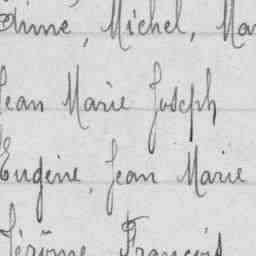 Michel, Ma
Jean Marie Joseph
Eugène, Jean Marie
Jérôme François